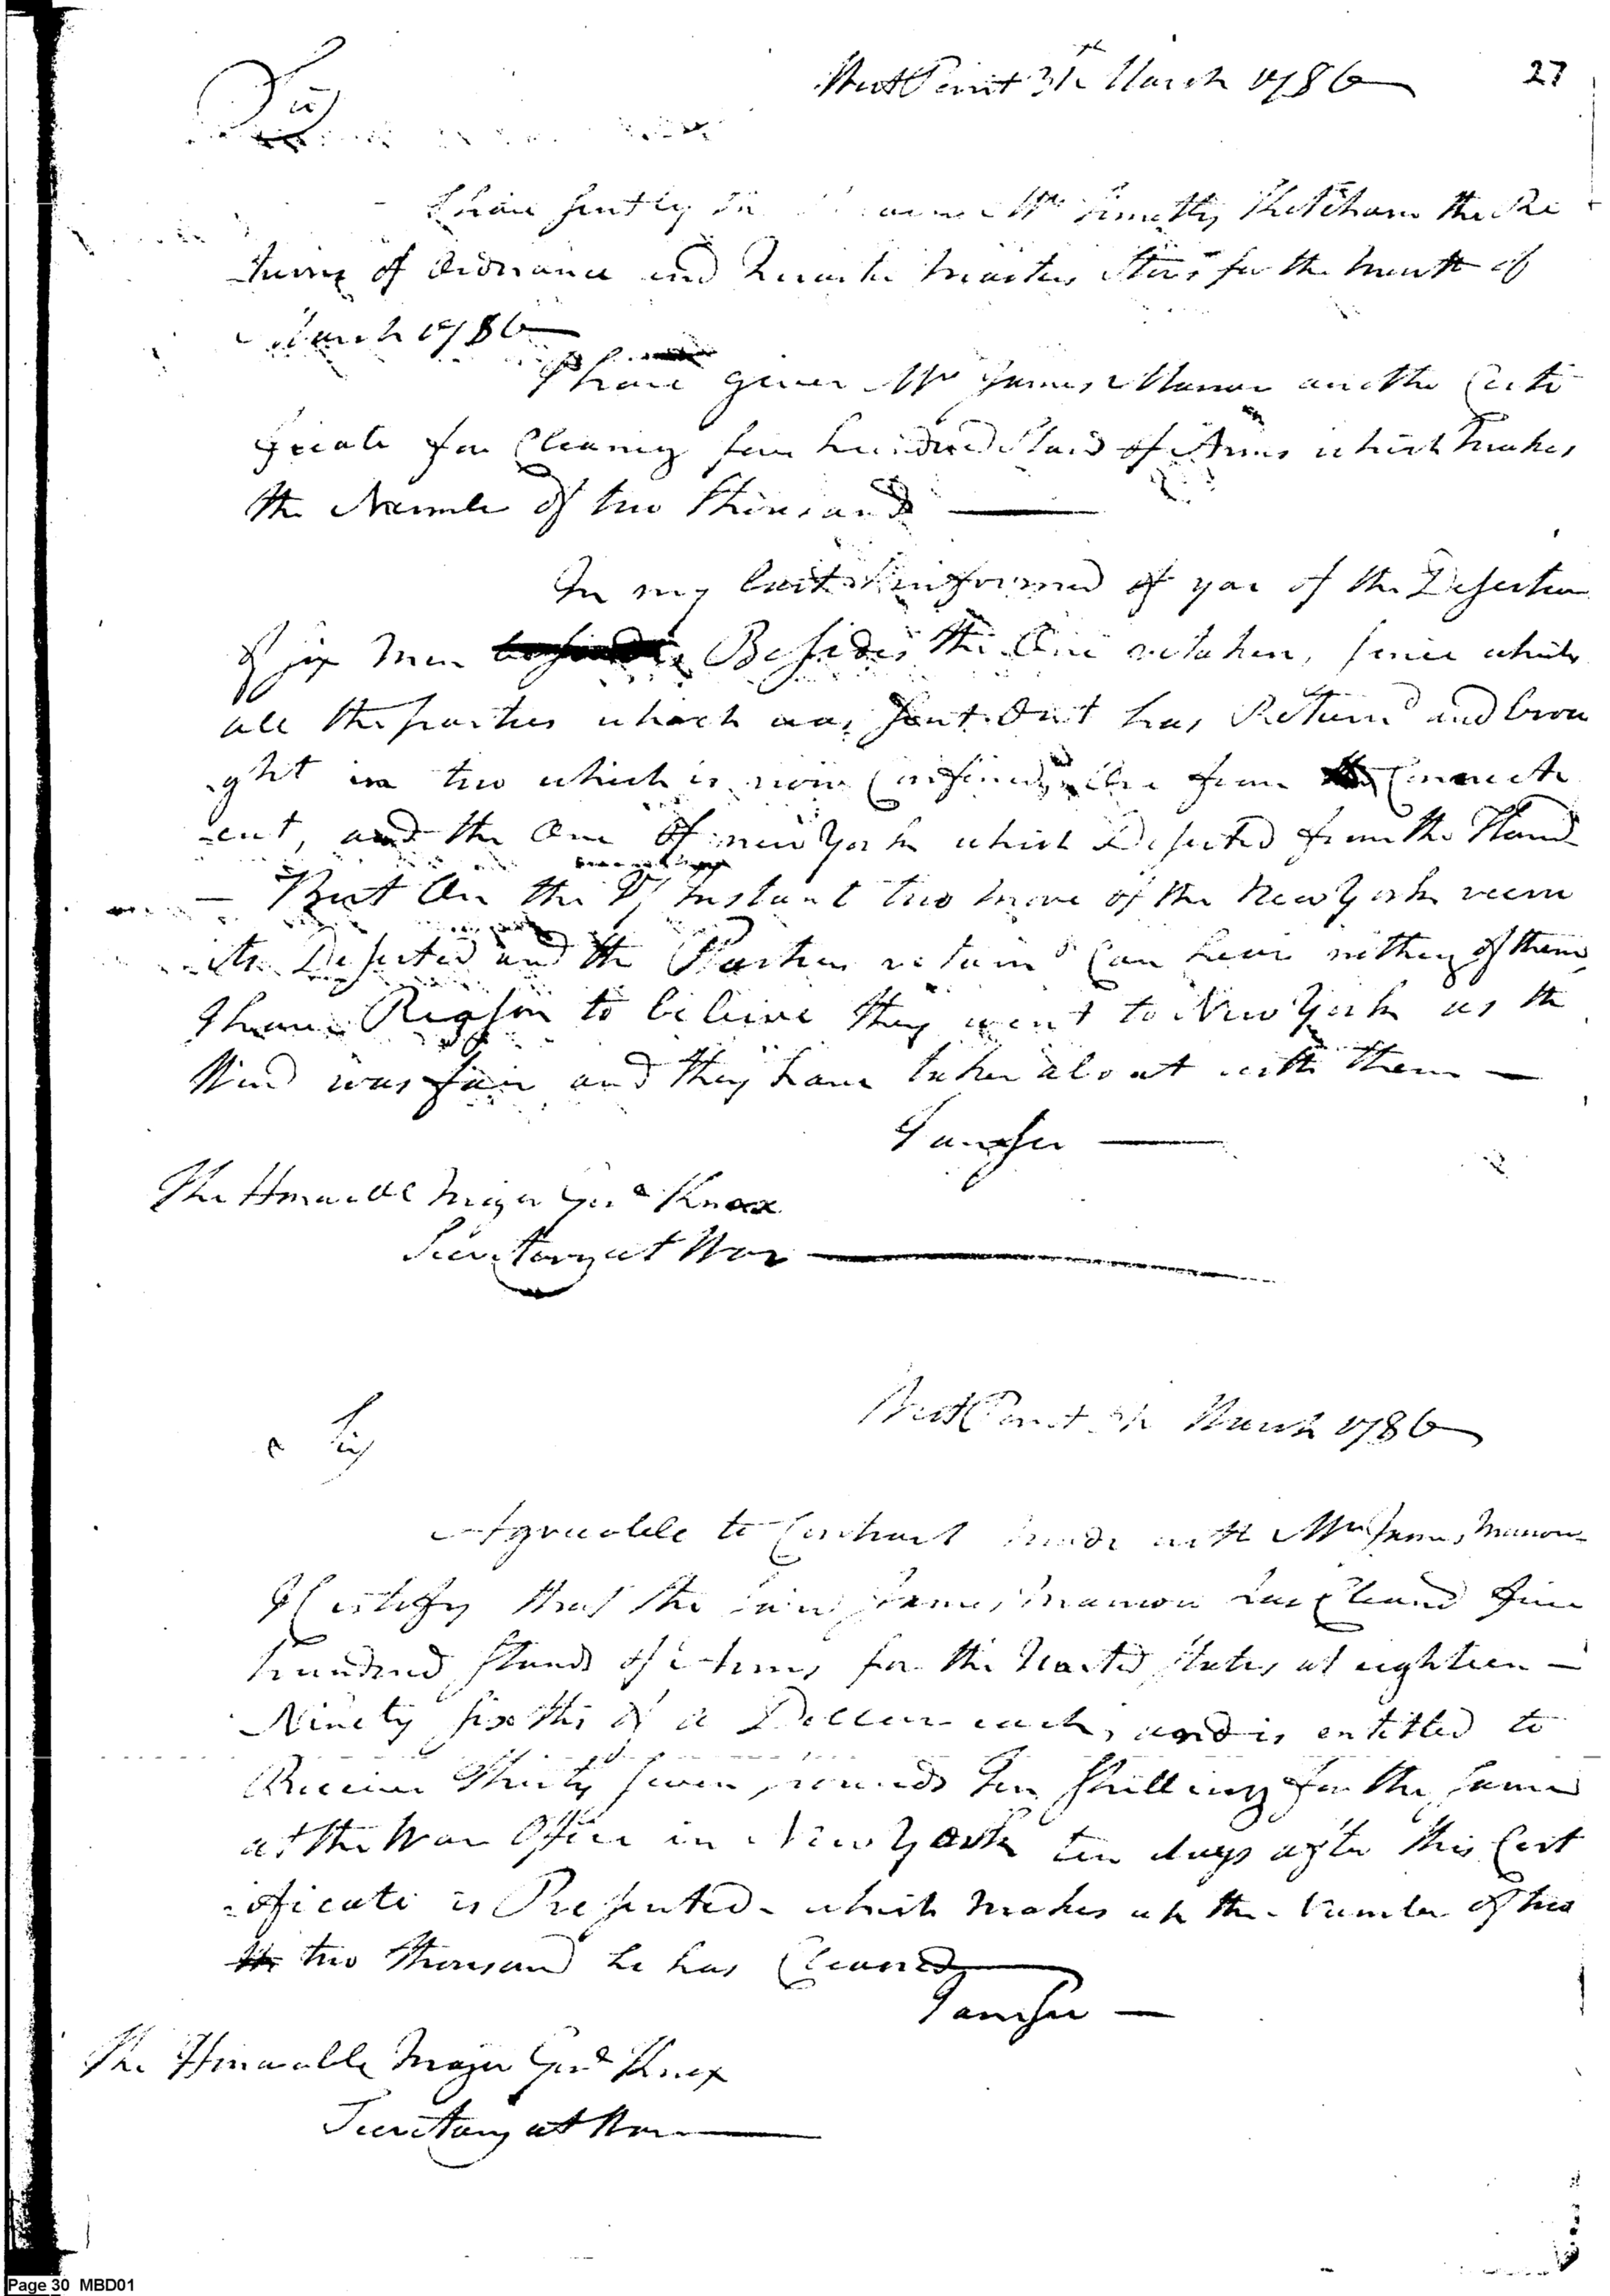 West Point 31st March 1786
27
Sir
I have sent by Mr Timothy Ketcham the Re
turns of Ordnance and Quarter Masters Stores for the Month of
March 1786
I have given Mr James Mannon another Certi
ficate for Cleaning five hundred Stand of Arms which makes
the Number of two thousand
In my last I informed of you of the Desertion
of six Men Besides the One retaken, since which
all the parties which was sent Out has Return'd and brou
ght in two which is now Confined, One from Connecti
cut, and the One of new York which Deserted from the Stand
But On the Instant two more of the New York recru
its Deserted and the Parties return'd Can hear nothing of them
I have Reason to beleive they went to New York as the
Wind was fair and they have taken a boat with them
I am Sir
The Honorable Major Genl Knox
Secretary at War
West Point 31 March 1786
Sir
Agreeable to Contract made with Mr James Mannon
I Certify that the said James Mannon has Cleaned five
hundred Stands of Arms for the United States at eighteen
Ninety sixths of a Dollar each, and is entitled to
Receive Thirty seven pounds Ten Shillings for the same
at the War Office in New York ten days after this Cert
ificate is Presented which makes up the Number of two
the two thousand he has Cleaned
I am Sir
The Honorable Major Genl Knox
Secretary at War
Page 30 MBD01